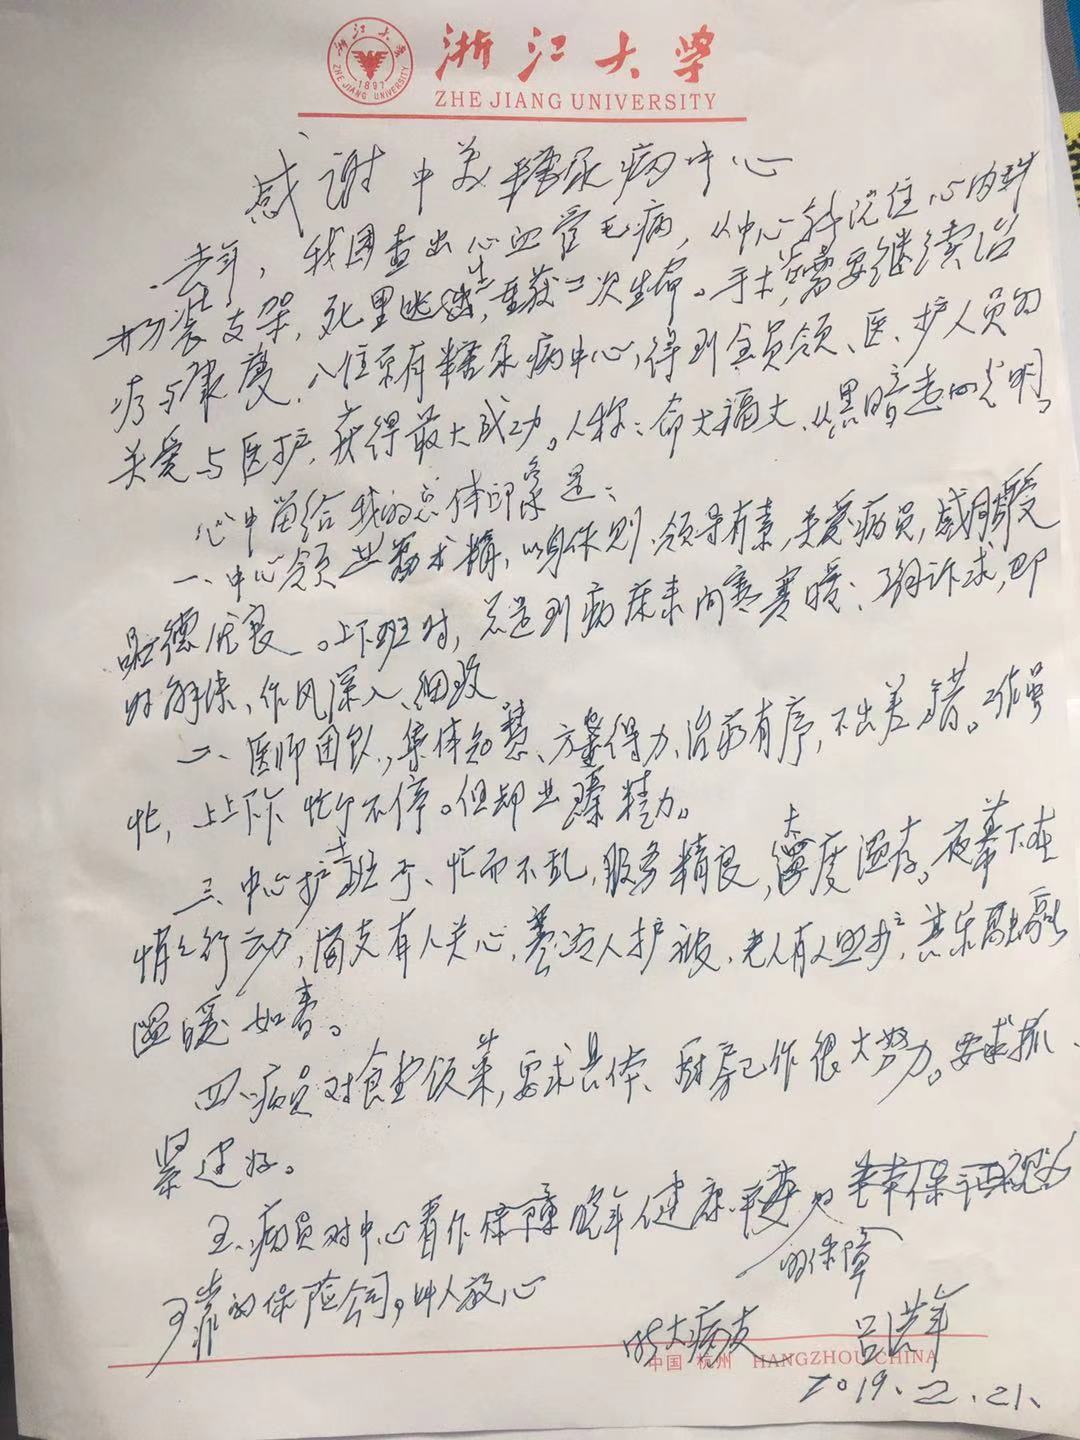 浙江大学
ZHE JIANG UNIVERSITY
浙江大学
ZHE JIANG UNIVERSITY
1897
感谢中美糖尿病中心
去年，我因查出心血管毛病，从中心转院住心内科
装支架，死里逃生，重获二次生命。手术需要继续治
疗与康复，入住原有糖尿病中心，得到全员领、医、护人员的
关爱与医护，获得最大成功。人称：命大福大，从黑暗走向光明。
心中留给我的总体印象是：
一、中心领导业务求精，以身作则，领导有素，关爱病员，感同身受
品德优良。上下班时，总是到病床来问寒赛暖、诉求，即
时解决、作风深入、细致
二、医师团队，集体智慧、方案得力、治疗有序，不出差错。工作虽
忙，上上下下忙个不停。但却业精力。
三、中心护士班子、忙而不乱，服务精良，态度温存。夜幕下在
悄悄行动，有人关心，人护被，老人有人照护，其乐融融
温暖如春。
四、病员对食堂饭菜，要求具体、厨房已作很大努力。要求抓
紧建好。
五、病员对中心看作保障晚年健康的
的保障
可靠的保险公司，叫人放心
浙大病友 吕洪年
中国 杭州 HANGZHOU CHINA
2019.2.21.